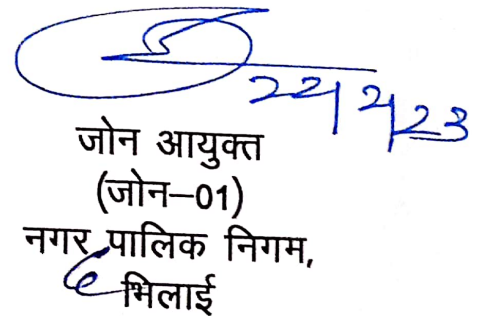 22/2/23
जोन आयुक्त
(जोन–01)
नगर पालिक निगम,
भिलाई